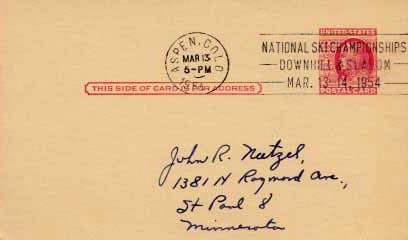 UNITED STATES
ASPEN, COLO.
MAR 13
5-PM
1954
NATIONAL SKI CHAMPIONSHIPS
DOWNHILL & SLALOM
MAR. 13-14, 1954
POSTAL CARD
THIS SIDE OF CARD IS FOR ADDRESS
John R. Neetzel,
1381 N Raymond Ave.,
St Paul 8
Minnesota